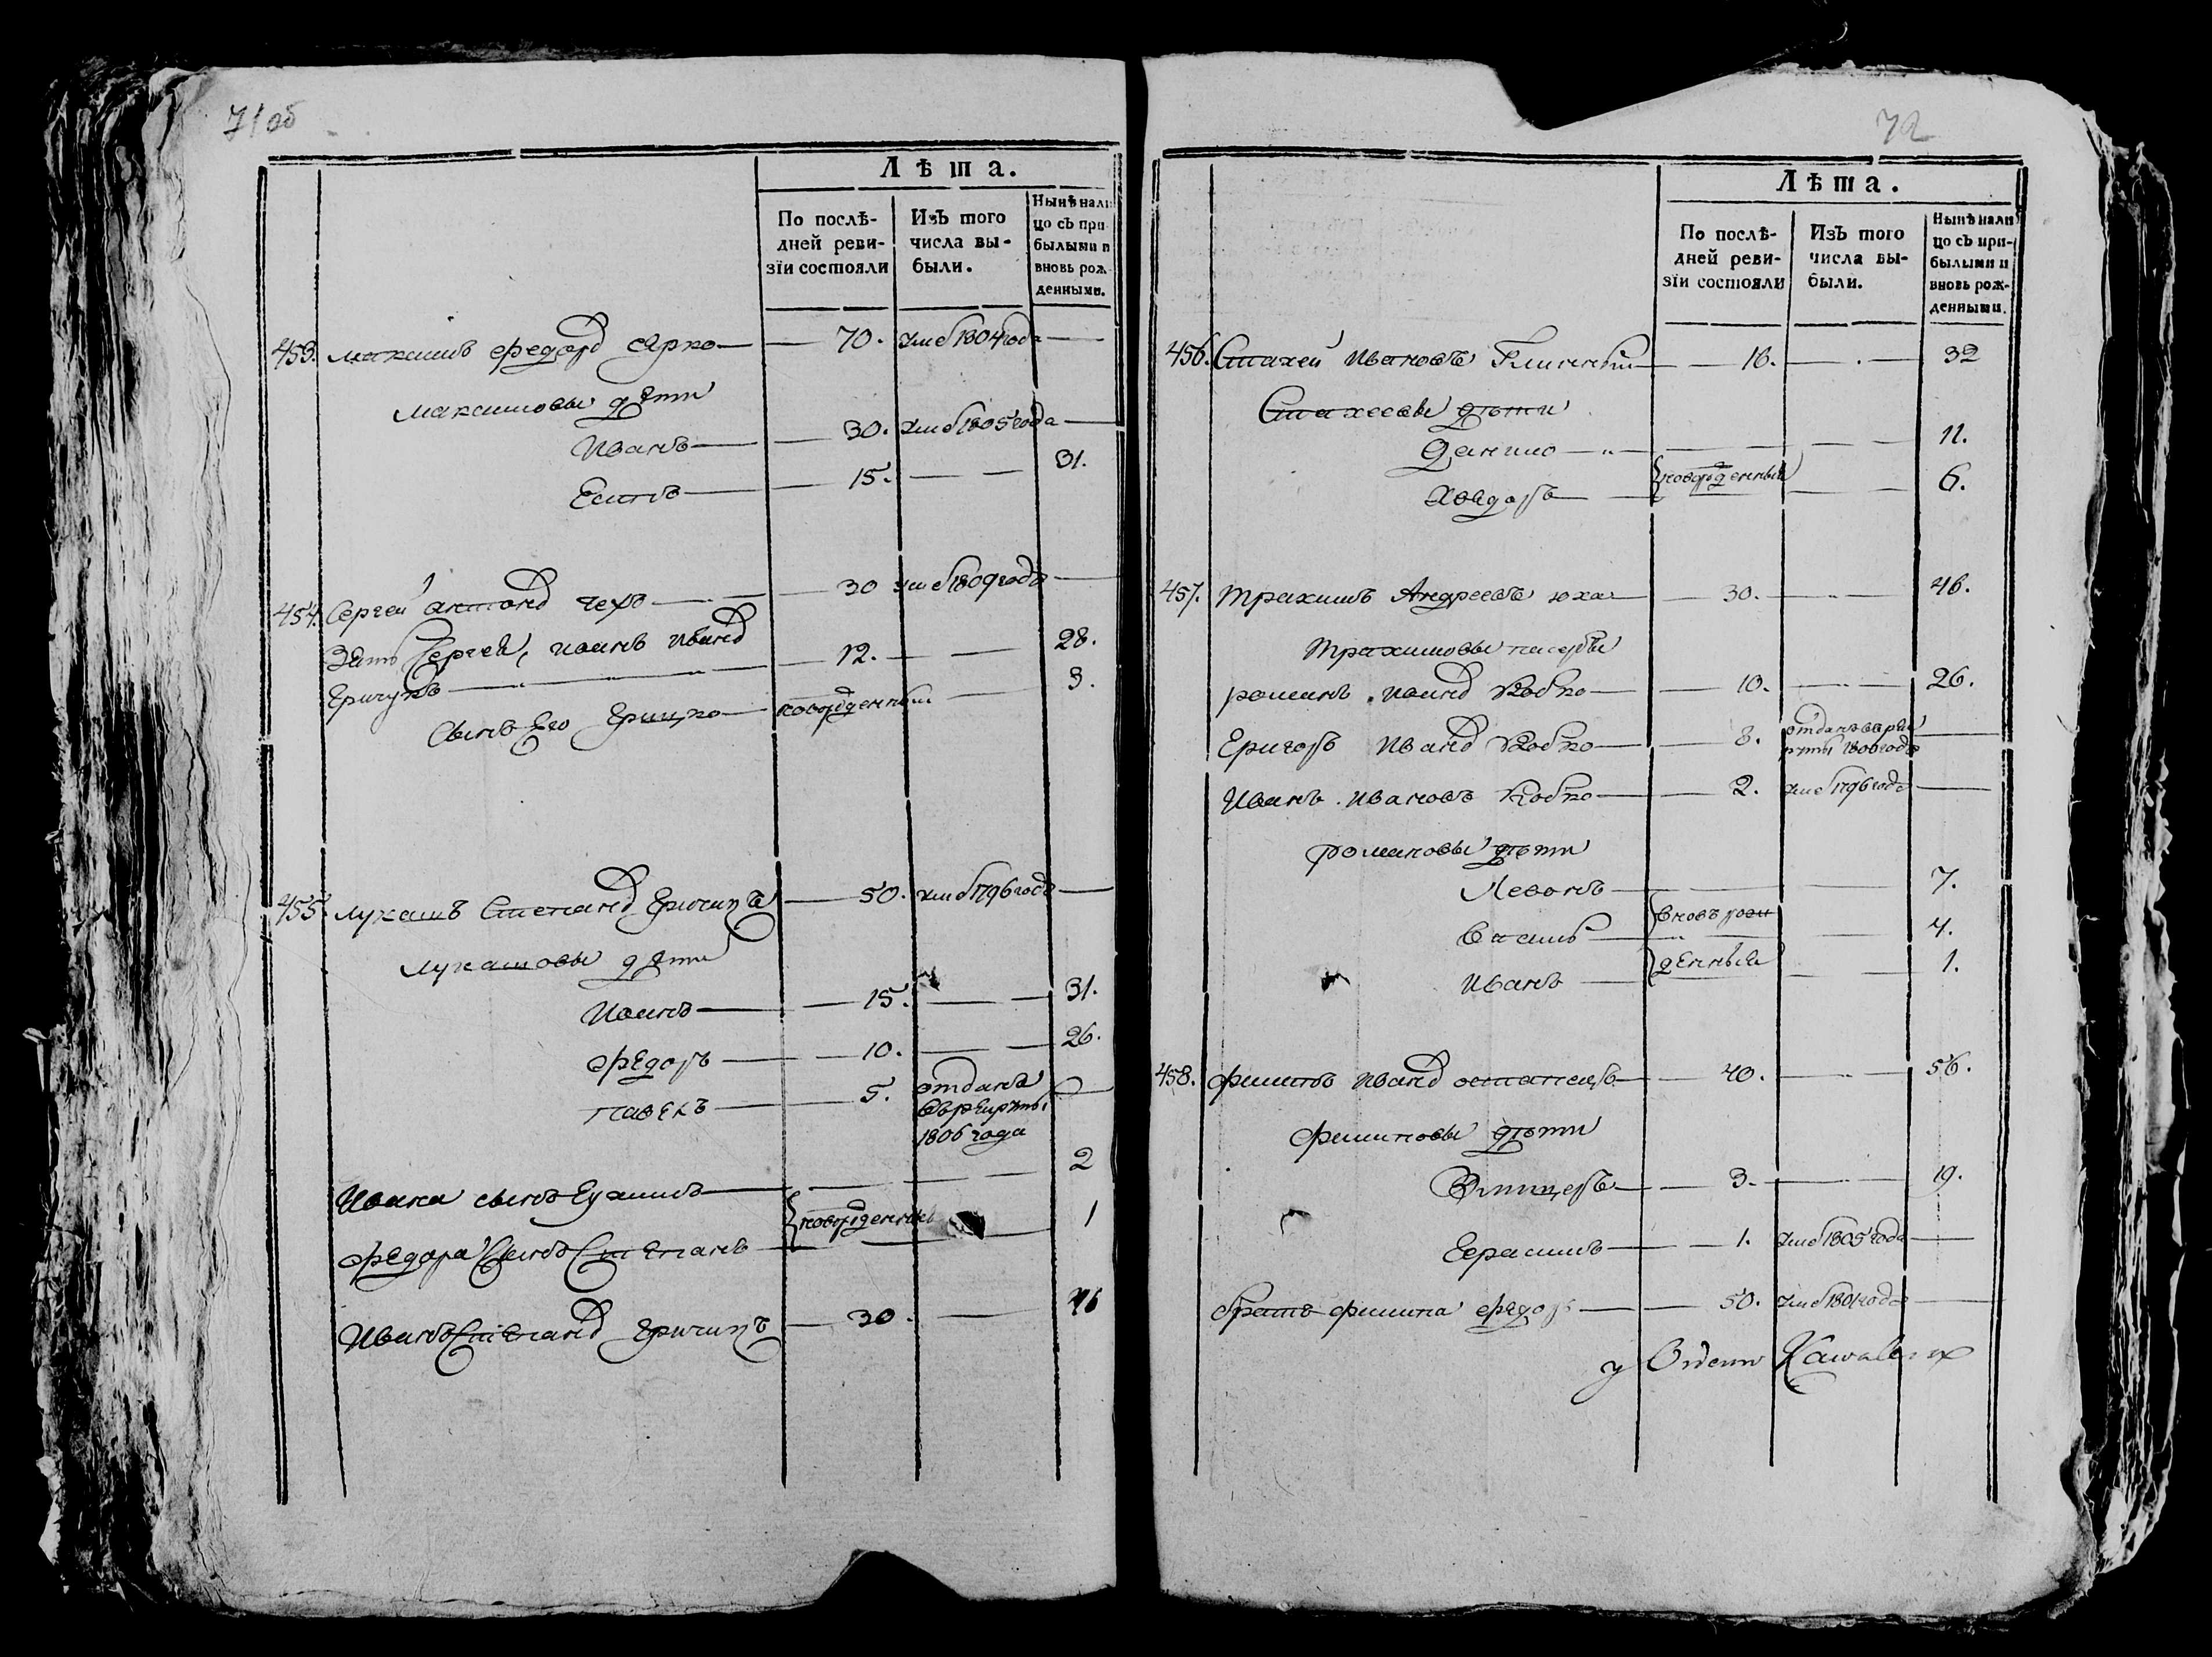 71 об
Лѣта.
По послѣ-
дней реви-
зіи состояли
Изъ того
числа вы-
были.
Нынѣ нали
цо съ при
былыми и
вновь рож
денными.
453. Максимъ Федоровъ Ярко — 70. Умеръ 1804 года —
Максимовы дѣти
Иванъ — 30. Умеръ 1805 года —
Есипъ — 15. — 31.
454. Сергей Антоновъ Чехъ — 30 Умеръ 1809 года —
Зять Сергея, Иванъ Ивановъ
Гричукъ — 12. — 28.
Сынъ Его Грицко — новорожденный — 3.
455. Лукашъ Степановъ — 50. Умеръ 1796 года —
Лукашовы дѣти
Иванъ — 15. — 31.
Федоръ — 10. — 26.
Павелъ — 5. отданъ
въ рекруты
1806 года
Ивана сынъ Еухимъ — 2
новорожденные
Федора Сынъ Степанъ — 1
Иванъ Степановъ — 30. — 46
72
Лѣта.
По послѣ-
дней реви-
зіи состояли
Изъ того
числа вы-
были.
Нынѣ нали
цо съ при-
былыми и
вновь рож-
денными.
456. Стахей Ивановъ — 16. — 32
Стахеевы дѣти
Данило — 11.
новорожденныи
Хведоръ — 6.
457. Трахимъ Андреевъ Юха — 30. — 46.
Трахимовы пасербы
Романъ Ивановъ Кобко — 10. — 26.
Григоръ Ивановъ Кобко — 8. отданъ въ рек
руты 1806 года —
Иванъ Ивановъ Кобко — 2. Умеръ 1796 года —
Романовы дѣти
Левонъ — 7.
вновь рож
Василь — 4.
денныя
Иванъ — 1.
458. Филипъ Ивановъ Остапецъ — 40. — 56.
Филиповы дѣти
— 3. — 19.
Герасимъ — 1. Умеръ 1805 года —
братъ Филипа Федоръ — 50. Умеръ 1801 года —
y Orderu Kawaler